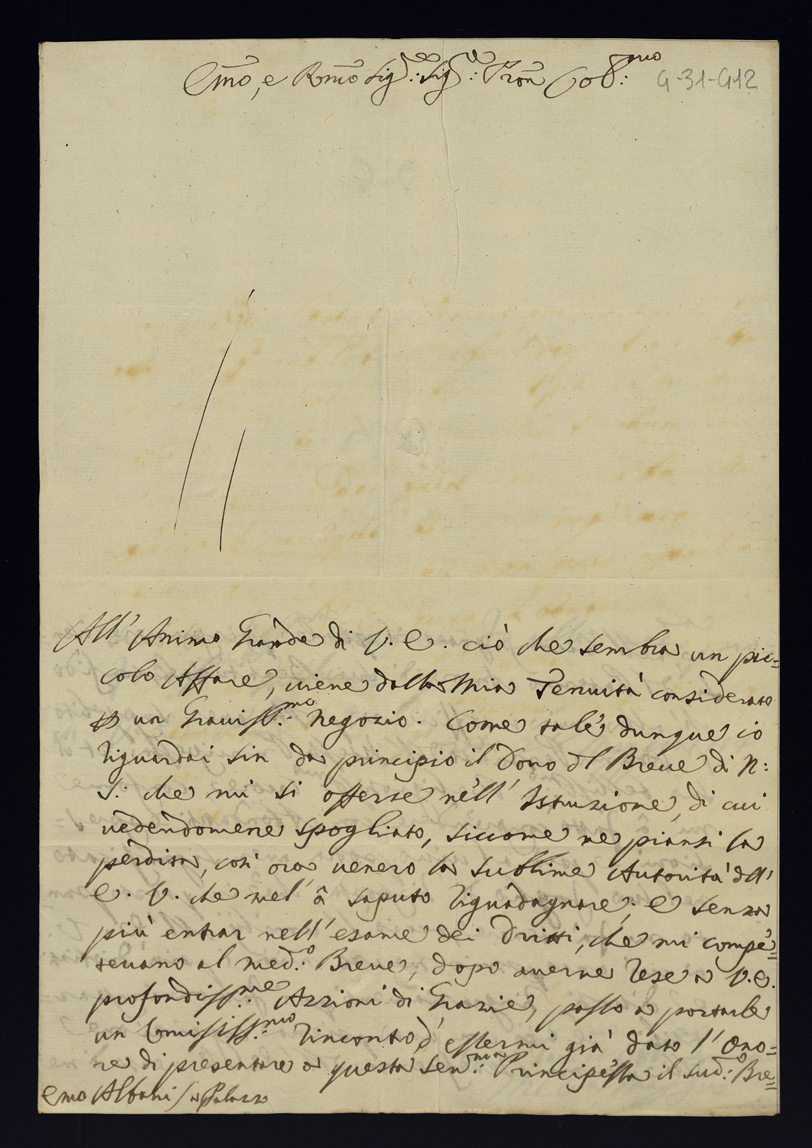 Emo, e Rmo Sig.re: Sig.re: Pron Col.mo G-31-G12
All' Animo Grande di V. E. ciò che sembra un pic=
colo Affare, viene dalla Mia Tenuità considerato
un Graviss.mo Negozio. Come tale dunque io
riguardai sin da principio il Dono dl Breve di N:
S: che mi si offerse nell' Istruzione, di cui
vedendomene spogliato, siccome ne piansi la
perdita, così ora venero la sublime Autorità dell'
E. V. che mel' à saputo riguadagnare; e senza
più entrar nell' esame dei Dritti, che mi compe=
tevano al med.o Breve, dopo averne rese a V. E.
profondiss.me Azzioni di Grazie, passo a portarle
un Umiliss.mo rincontro d' essermi già dato l' Ono=
re di presentare a questa Seren.ma Principessa il sud.o Bre=
Emo Albani / a Palazzo